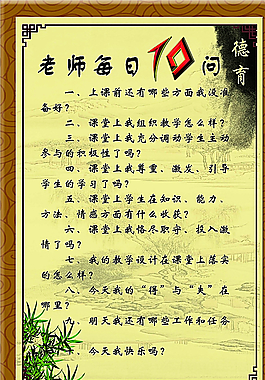 德育
老师每日10问
一、上课前还有哪些方面我没准
备好?
二、课堂上我组织教学怎么样?
三、课堂上我充分调动学生主动
参与的积极性了吗?
四、课堂上我尊重、激发、引导
学生的学习了吗?
五、课堂上学生在知识、能力、
方法、情感方面有什么收获?
六、课堂上我恪尽职守、投入激
情了吗?
七、我的教学设计在课堂上落实
的怎么样?
八、今天我的“得”与“失”在
哪里?
九、明天我还有哪些工作和任务
十、今天我快乐吗?